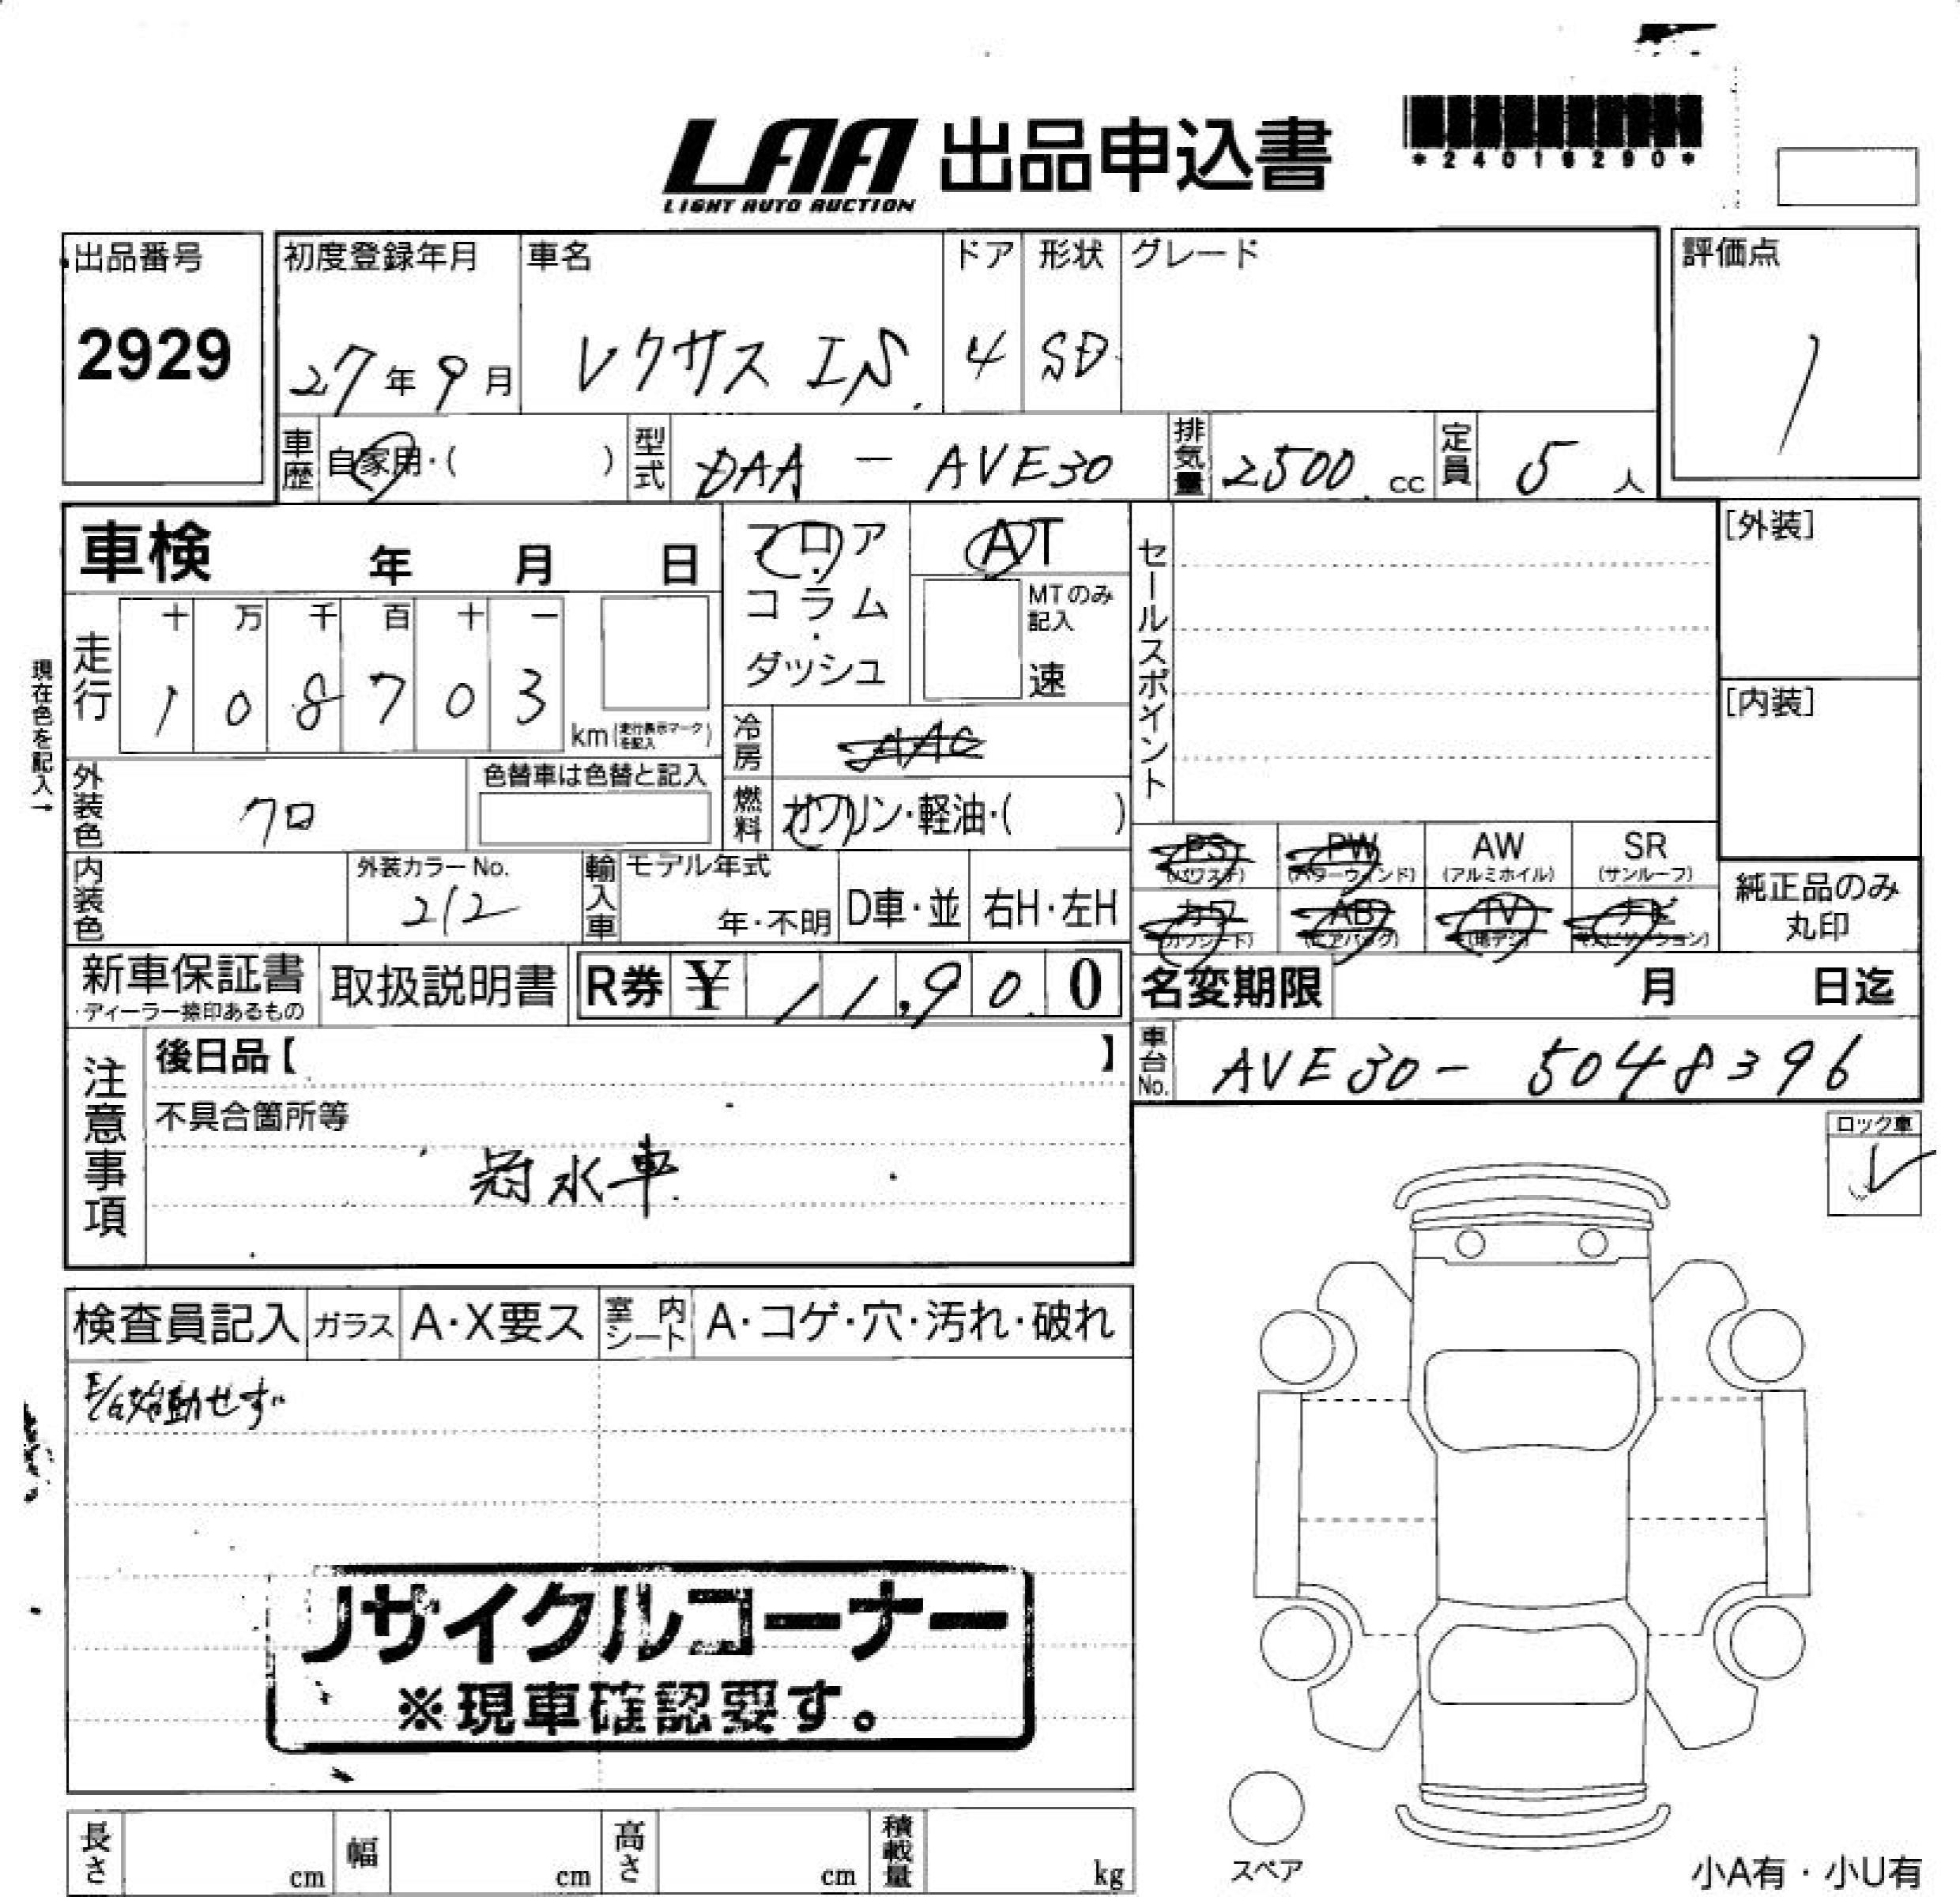 LAA 出品申込書
LIGHT AUTO AUCTION
*24016290*
出品番号
2929
初度登録年月
27年9月
車名
レクサス IS
ドア
4
形状
SD
グレード
評価点
1
車歴 自家用・( )
型式 DAA - AVE30
排気量 2500 cc
定員 5人
車検 年 月 日
フロア・コラム・ダッシュ
AT
MTのみ記入
速
セールスポイント
[外装]
[内装]
現在色を記入→
走行
十 万 千 百 十 一
1 0 8 7 0 3
km(走行表示マークを記入)
冷房 AAC
外装色 クロ
色替車は色替と記入
燃料 ガソリン・軽油・( )
内装色
外装カラーNo.
212
輸入車
モデル年式
年・不明
D車・並
右H・左H
PS (パワステ)
PW (パワーウィンド)
AW (アルミホイル)
SR (サンルーフ)
カワ (カワシート)
AB (エアバッグ)
TV (地デジ)
ナビ (ナビゲーション)
純正品のみ
丸印
新車保証書
・ディーラー捺印あるもの
取扱説明書
R券 ¥ 11,900
名変期限 月 日迄
車台No. AVE30- 5048396
注意事項
後日品【 】
不具合箇所等
冠水車
ロック車
✓
検査員記入
ガラス A・X要ス
室内シート A・コゲ・穴・汚れ・破れ
E/G始動せず
リサイクルコーナー
※現車確認要す。
長さ cm
幅 cm
高さ cm
積載量 kg
スペア
小A有・小U有